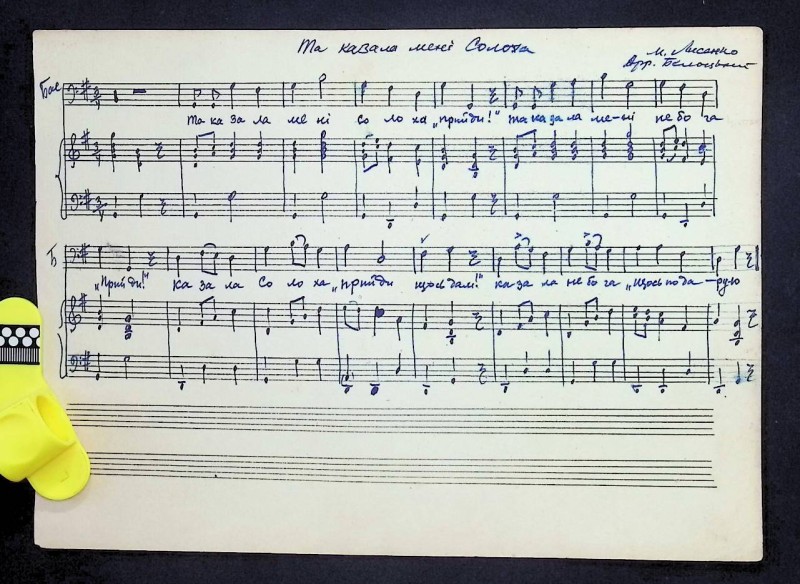 Та казала мені Солоха
М. Лисенко
Арр. Белоцький
Бас
та ка за ла ме ні со ло ха „прийди!" та ка за ла ме-ні не бо га
Б
„Прийди!" ка за ла Со ло ха „прийди щось дам!" ка-за ла не бо га „Щось пода-рую